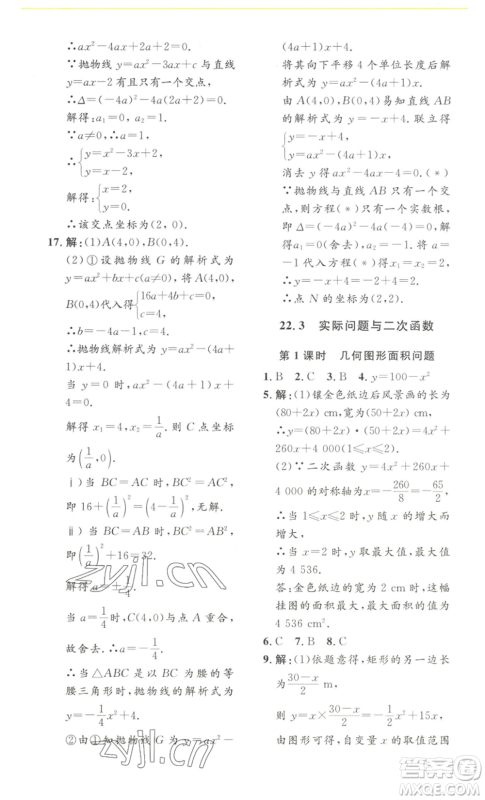 ∴ax²-4ax+2a+2=0.
∵抛物线 y=ax²-3ax+2 与直线
y=ax-2 有一个交点,
∴Δ=(-4a)²-4a(2a+2)=0.
解得:a₁=0,a₂=1.
∵a≠0,∴a=1,
∴{y=x²-3x+2,
y=x-2,
解得:{x=2,
y=0.
∴该交点坐标为(2,0).
17.解:(1)A(4,0),B(0,4).
(2)①设抛物线 G 的解析式为
y=ax²+bx+c,把 A(4,0),
B(0,4)代入得{16a+4b+c=0,
c=4.
∴b=-4a-1.
∴抛物线解析式为 y=ax²-(4a
+1)x+4.
当 y=0 时,ax²-(4a+1)x+4
=0,
解得 x₁=4,x₂=1/a,则 C 点坐标
为(1/a,0).
ⅰ)当 BC=AC 时,BC²=AC²,
即 16+(1/a)²=(4-1/a)²,无解.
ⅱ)当 BC=AB 时,BC²=AB²,
即(1/a)²+16=32.
解得 a=±1/4.
当 a=1/4 时,C(4,0)与点 A 重合,
故舍去.∴a=-1/4.
∴当△ABC 是以 BC 为腰的等
腰三角形时,抛物线的解析式为
y=-1/4x²+4.
②由①知抛物线为 y=ax²-
(4a+1)x+4.
将其向下平移 4 个单位长度后解
析式为 y=ax²-(4a+1)x.
由 A(4,0),B(0,4)易知直线 AB
的解析式为 y=-x+4.联立得
{y=ax²-(4a+1)x,
y=-x+4,
消去 y 得 ax²-4ax-4=0.(*)
∵抛物线与直线 AB 只有一个交
点,则方程(*)只有一个实数根,
即 Δ=(-4a)²-4a×(-4)=0,
解得 a₁=0(舍去),a₂=-1.将 a=
-1 代入方程(*)得 x₁=x₂=2.
∴点 N 的坐标为(2,2).
22.3 实际问题与二次函数
第1课时 几何图形面积问题
1.B 2.C 3.B 4.y=100-x²
5.解:(1)镶金色纸边后风景画的长为
(80+2x)cm,宽为(50+2x)cm,
∴y=(80+2x)·(50+2x)=4x²+
260x+4 000(1≤x≤2).
(2)∵二次函数 y=4x²+260x+
4 000 的对称轴为 x=-260/8=-65/2,
∴当 1≤x≤2 时,y 随 x 的增大
而增大.
∴当 x=2 时,y 取最大值,最大值
为 4 536.
答:金色纸边的宽为 2 cm 时,这幅
挂图的面积最大,最大面积为
4 536 cm².
6.C 7.B 8.C
9.解:(1)依题意得,矩形的另一边长
为(30-x)/2,
则 y=x×(30-x)/2=-1/2x²+15x,
由图形可知,x 的取值范围
zyjl.cn
zyjl.cn
答案圈
MXQE.COM